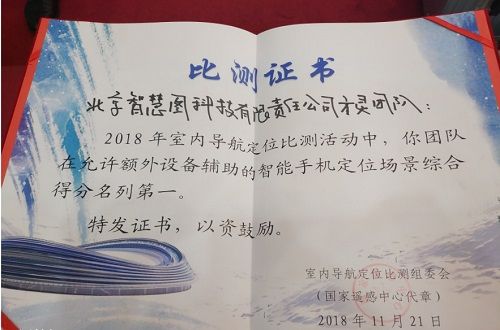 比测证书
北京智慧图科技有限责任公司团队：
2018年室内导航定位比测活动中，你团队
在允许额外设备辅助的智能手机定位场景综合
得分名列第一。
特发证书，以资鼓励。
室内导航定位比测组委会
（国家遥感中心代章）
2018年11月21日